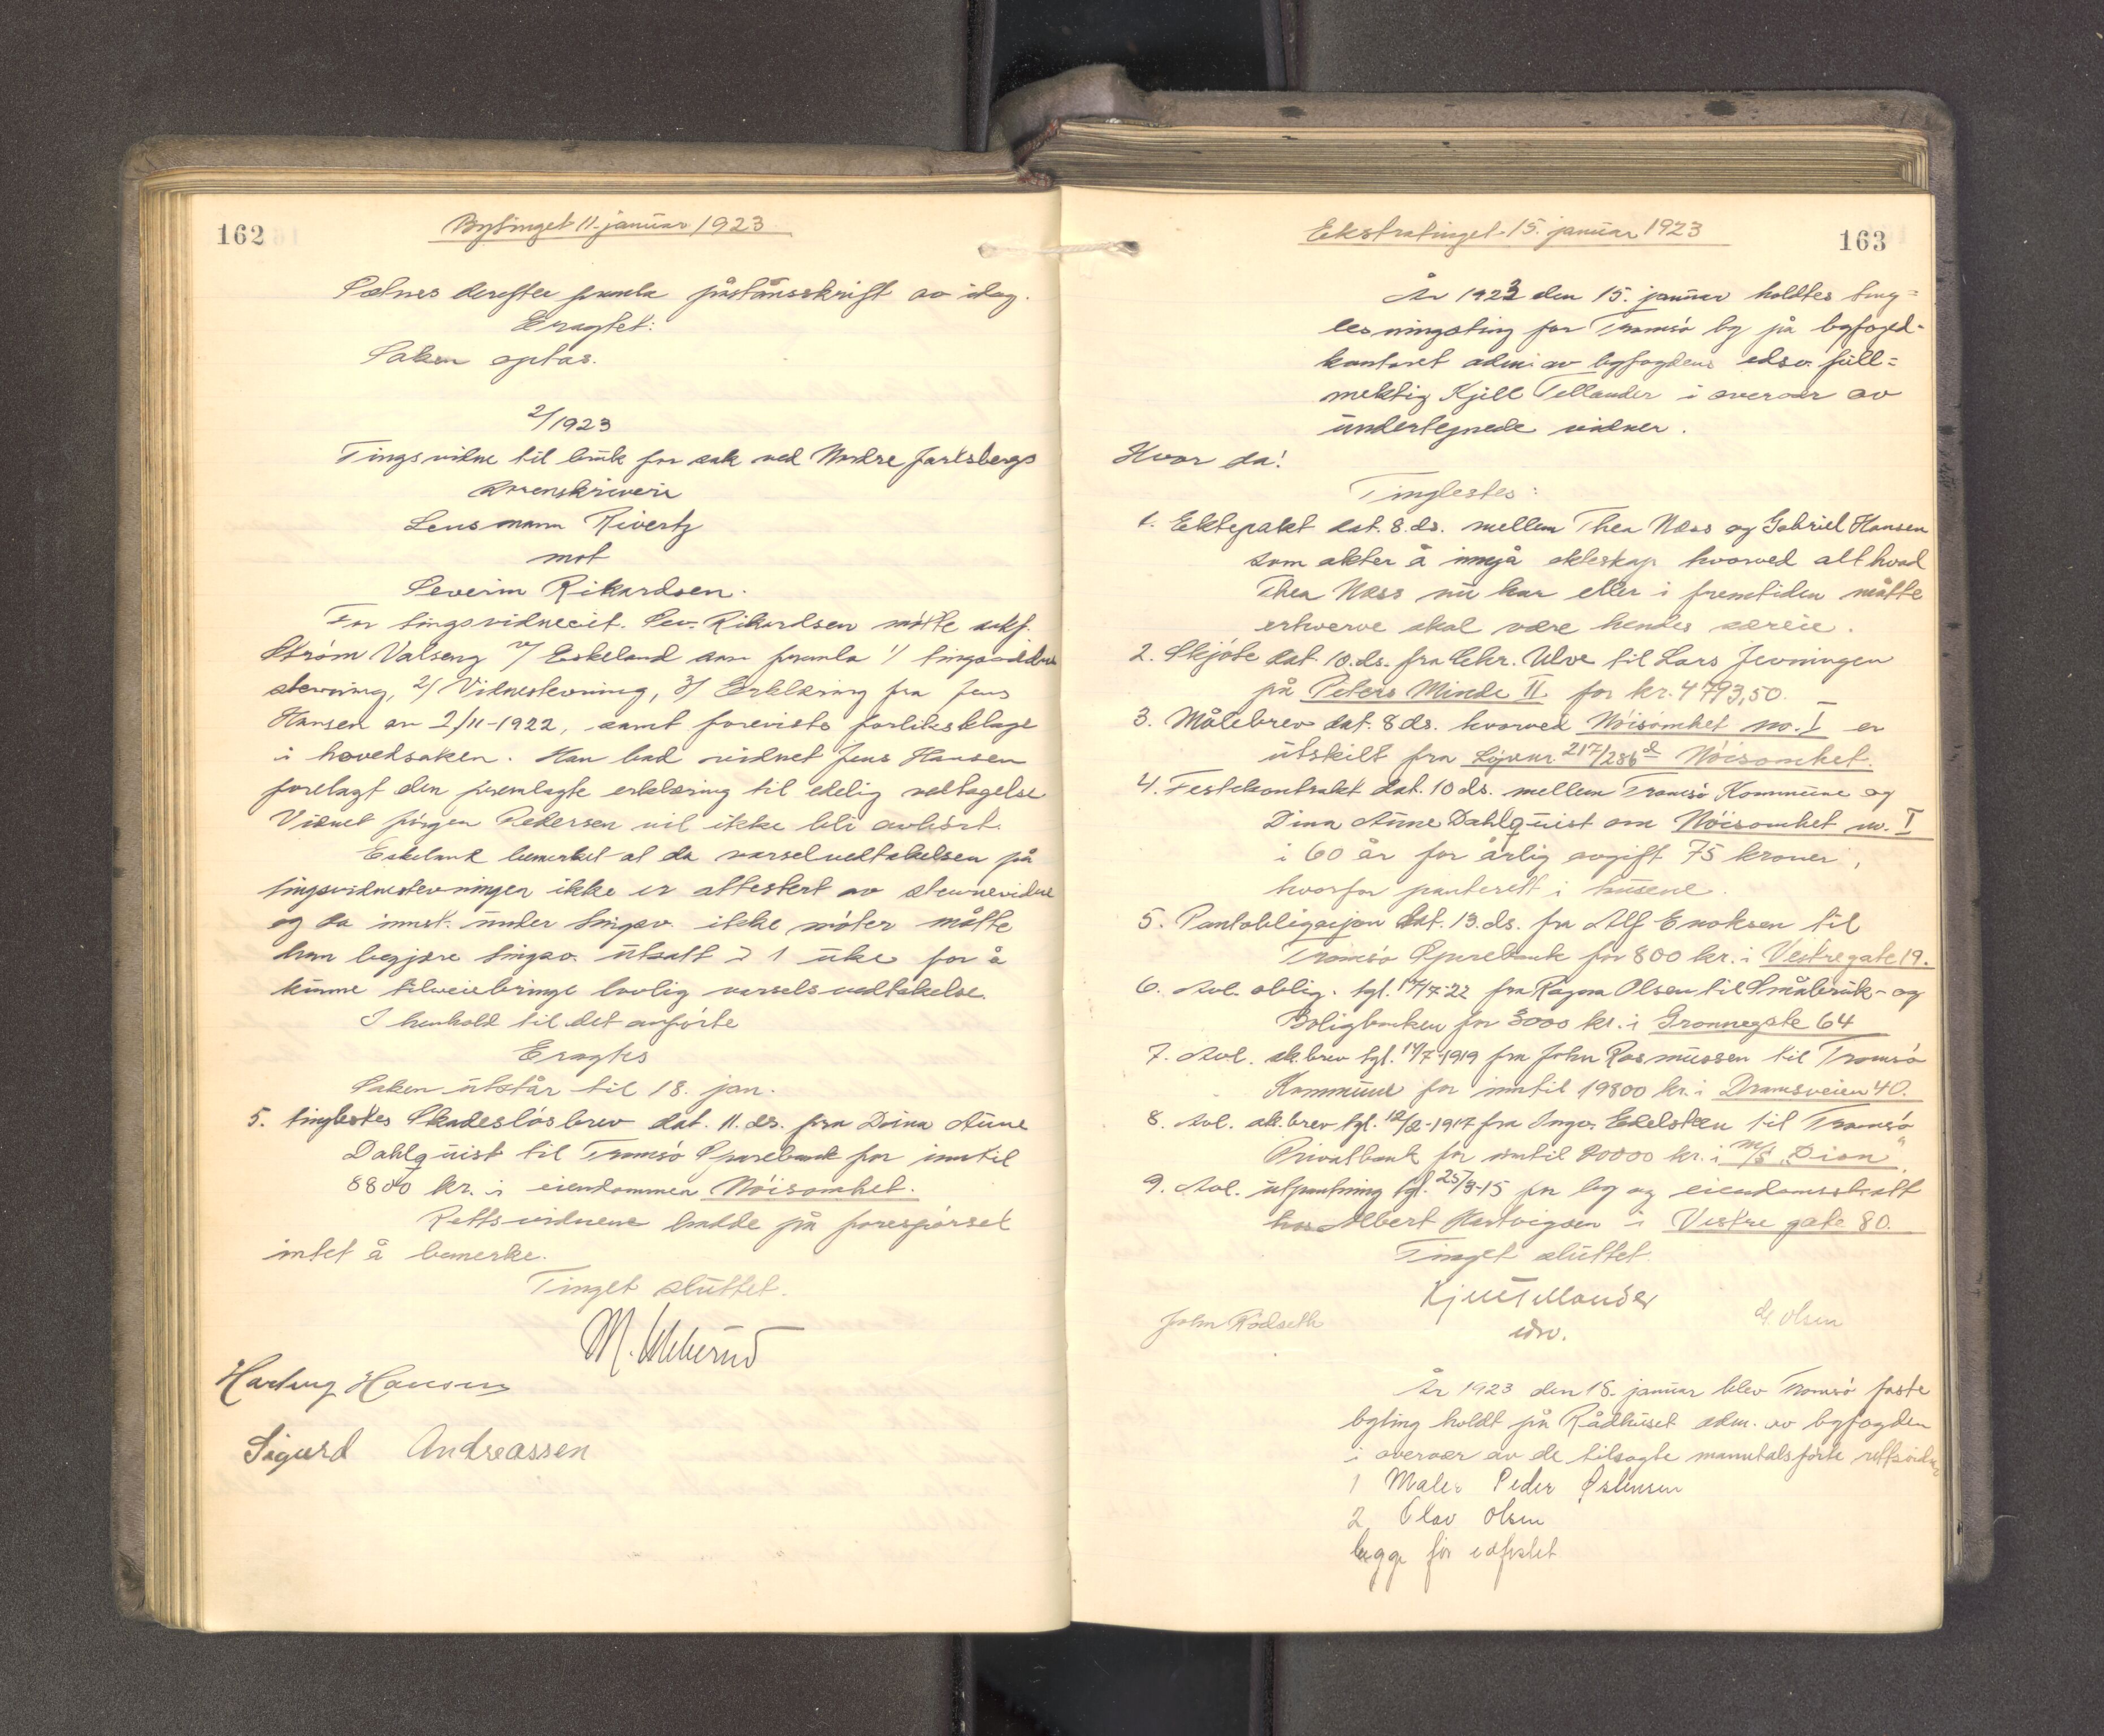 162
Bytinget 11. januar 1923
Sætnes derefter fremla påstånsskrift av idag.
Eragtet:
Saken optas.
2/1923
Tingsvidne til bruk for sak ved Nordre Jarlsbergs
sorenskriveri
Lensmann Rivertz
mot
Severin Rikardsen.
For tingsvidnecit. Sev. Rikardsen møtte sakf.
Strøm Valseng v/ Eskeland som fremla 1/ tingsvidne
stevning, 2/ Vidnestevning, 3/ Erklæring fra Jens
Hansen av 2/11-1922, samt foreviste forliksklage
i hovedsaken. Han bad vidnet Jens Hansen
forelagt den fremlagte erklæring til edelig vedtagelse
Vidnet Jørgen Pedersen vil ikke bli avhørt.
Eskeland bemerket at da varselvedtakelsen på
tingsvidnestevningen ikke er attestert av stevnevidne
og da innst. under tingsv. ikke møter måtte
han begjære tingsv. utsatt i 1 uke for å
kunne tilveiebringe lovlig varselsvedtakelse.
I henhold til det anførte
Eragtes
Saken utstår til 18. jan.
5. tinglestes Skadesløsbrev dat. 11. ds. fra Dina Aune
Dahlquist til Tromsø Sparebank for inntil
8800 kr. i eiendommen Nøisomhet.
Rettsvidnene hadde på forespørsel
intet å bemerke.
Tinget sluttet.
Hartvig Hansen
Sigurd Andreassen
Ekstratinget 15. januar 1923
163
År 1923 den 15. januar holdtes ting=
lesningsting for Tromsø by på byfogd-
kontoret adm. av byfogdens edsv. full=
mektig Kjell Tellander i overvær av
undertegnede vidner.
Hvor da!
Tinglestes:
1. Ektepakt dat. 8. ds. mellem Thea Næss og Gabriel Hansen
som akter å inngå ekteskap hvorved alt hvad
Thea Næss nu har eller i fremtiden måtte
erhverve skal være hendes særeie.
2. Skjøte dat. 10. ds. fra Chr. Ulve til Lars Jevningen
på Peters Minde II for kr. 4793,50.
3. Målebrev dat. 8 ds. hvorved Nøisomhet no. I er
utskilt fra Løpenr. 217/286d Nøisomhet.
4. Festekontrakt dat. 10 ds. mellem Tromsø Kommune og
Dina Aune Dahlquist om Nøisomhet no. I
i 60 år for årlig avgift 75 kroner,
hvorfor panterett i husene.
5. Pantobligasjon dat. 13. ds. fra Alf Enoksen til
Tromsø Sparebank for 800 kr. i Vestregate 19.
6. Avl. oblig. tgl. 14/7-22 fra Ragna Olsen til Småbruk- og
Boligbanken for 3000 kr. i Grønnegate 64
7. Avl. sk.brev tgl. 14/7-1919 fra John Rasmussen til Tromsø
Kommune for inntil 19800 kr. i Dramsveien 40.
8. Avl. sk.brev tgl. 12/2-1917 fra Ingv. Edelsteen til Tromsø
Privatbank for inntil 20000 kr. i m/s „Dion"
9. Avl. utpantning tgl. 25/3-15 for by og eiendomsskatt
hos Albert Hartvigsen i Vestre gate 80.
Tinget sluttet.
Kjell Tellander
edsv.
John Rødseth
Olsen
År 1923 den 18. januar blev Tromsø faste
byting holdt på Rådhuset adm. av byfogden
i overvær av de tilsagte manntalsførte rettsvidner
1 Maler Peder Østensen
2 Olav Olsen
begge før edfestet